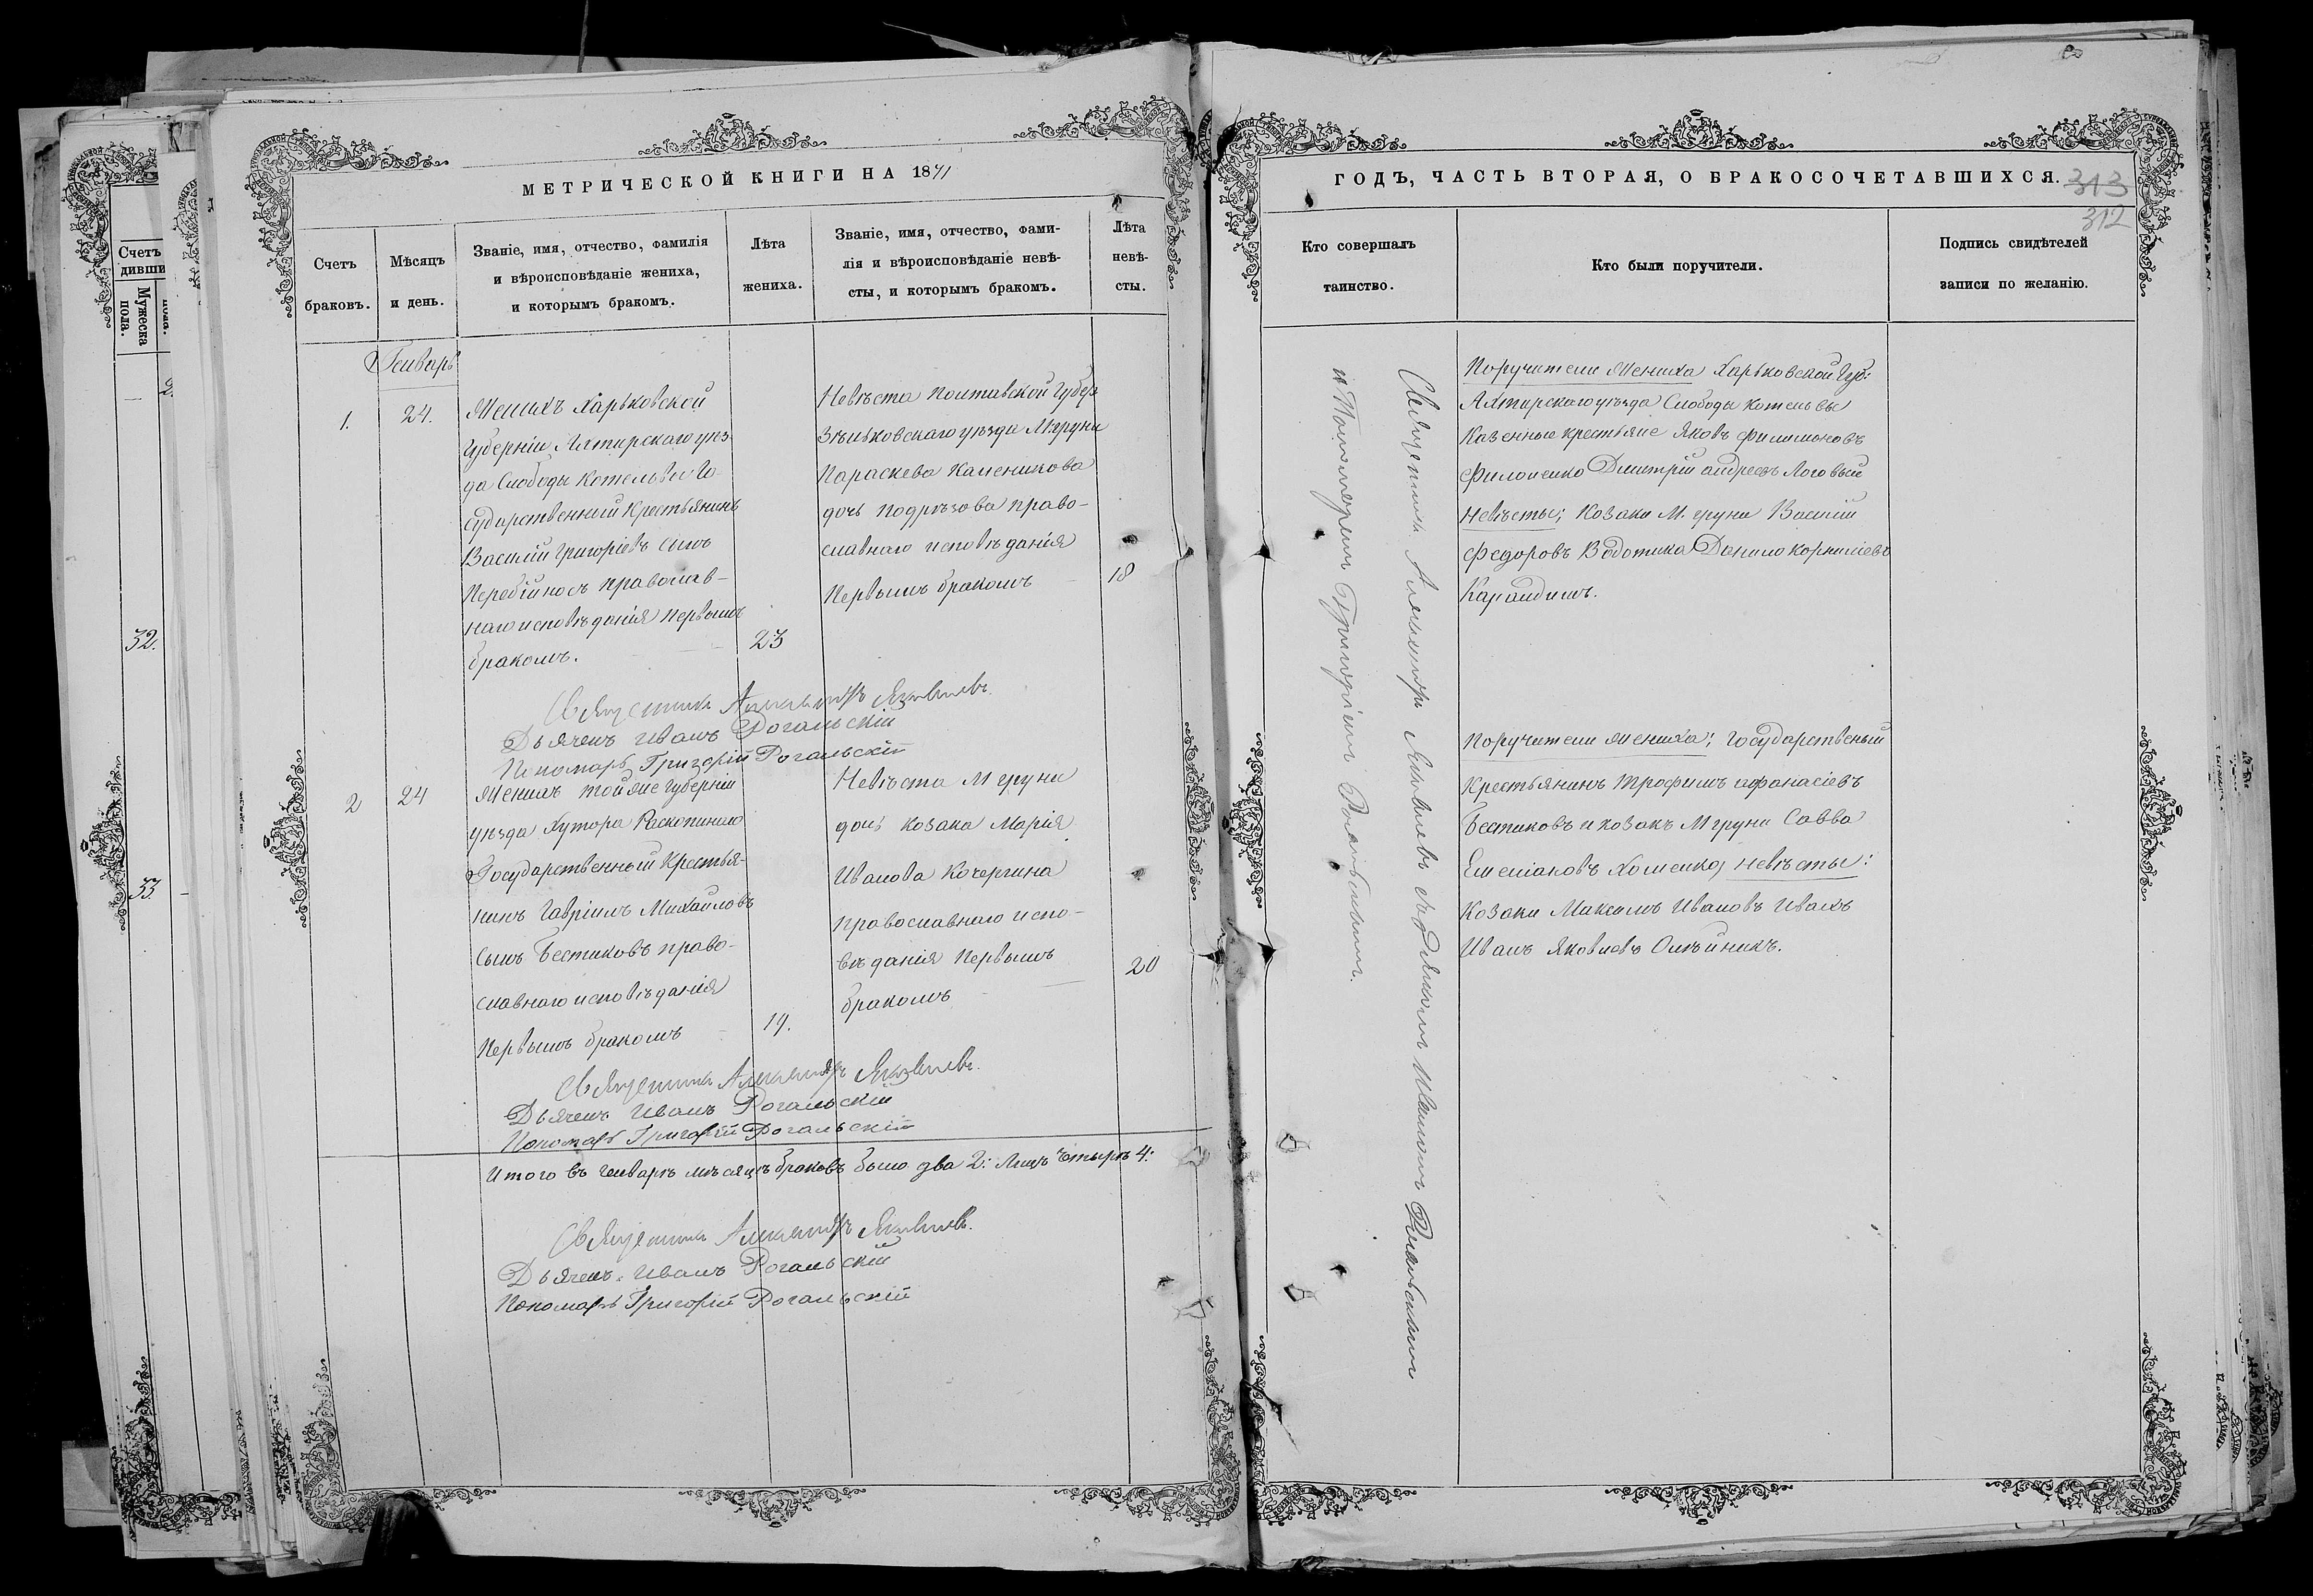 МЕТРИЧЕСКОЙ КНИГИ НА 1871
Счетъ браковъ.
Мѣсяцъ и день.
Званіе, имя, отчество, фамилія
и вѣроисповѣданіе жениха,
и которымъ бракомъ.
Лѣта жениха.
Званіе, имя, отчество, фами-
лія и вѣроисповѣданіе невѣ-
сты, и которымъ бракомъ.
Лѣта невѣ-
сты.
Генварь
1.
24.
Женихъ Харьковской
Губерніи Ахтирскаго уѣз
да Слободы Котельвы Го-
сударственный Крестьянинъ
Василій Григоріевъ сынъ
Перебійносъ православ-
наго исповѣданія первымъ
бракомъ.
23
Невѣста Полтавской Губер
Зѣньковскаго уѣзда М. груни
Параскева Каленикова
дочь Подрѣзова право-
славнаго исповѣданія
Первымъ бракомъ
18
Священникъ Александръ Яковлевъ.
Дьячекъ Иванъ Рогальскій
Пономарь Григорій Рогальскій
2
24
Женихъ той же Губерніи
уѣзда Хутора Раскопинаго
Государственный Крестья-
нинъ Гавріилъ Михайловъ
Сынъ Бестиковъ право-
славнаго исповѣданія
Первымъ бракомъ
19.
Невѣста М груни
дочь козака Марія
Иванова Кочергина
православнаго испо-
вѣданія Первымъ
бракомъ
20
Священникъ Александръ Яковлевъ.
Дьячекъ Иванъ Рогальскій
Пономарь Григорій Рогальскій
Итого въ генварѣ мѣсяцѣ браковъ было два 2: Лицъ четырѣ 4:
Священникъ Александръ Яковлевъ.
Дьячекъ Иванъ Рогальскій
Пономарь Григорій Рогальскій
ГОДЪ, ЧАСТЬ ВТОРАЯ, О БРАКОСОЧЕТАВШИХСЯ.
313
312
Кто совершалъ
таинство.
Кто были поручители.
Подпись свидѣтелей
записи по желанію.
Священникъ Александръ Яковлевъ съ Дьячкомъ Иваномъ Рогальскимъ
и Пономаремъ Григоріемъ Рогальскимъ.
Поручители Жениха Харьковской Губ:
Ахтирскаго уѣзда Слободы Котельвы
Казенные крестьяне Яковъ Филимоновъ
Филоненко Дмитрій Андреевъ Логовый
Невѣсты; Козаки М. груни Василій
Федоровъ Водотика Данило Корниліевъ
Карандишъ.
Поручители Жениха; Государственый
Крестьянинъ Трофимъ Афанасіевъ
Бестиковъ и козакъ М груни Савва
Емеліановъ Хоменко, Невѣсты:
Козаки Максимъ Ивановъ Ивахъ
Иванъ Яковлевъ Олѣйникъ.
Счетъ
дивши
Мужеска
пола.
32.
33.